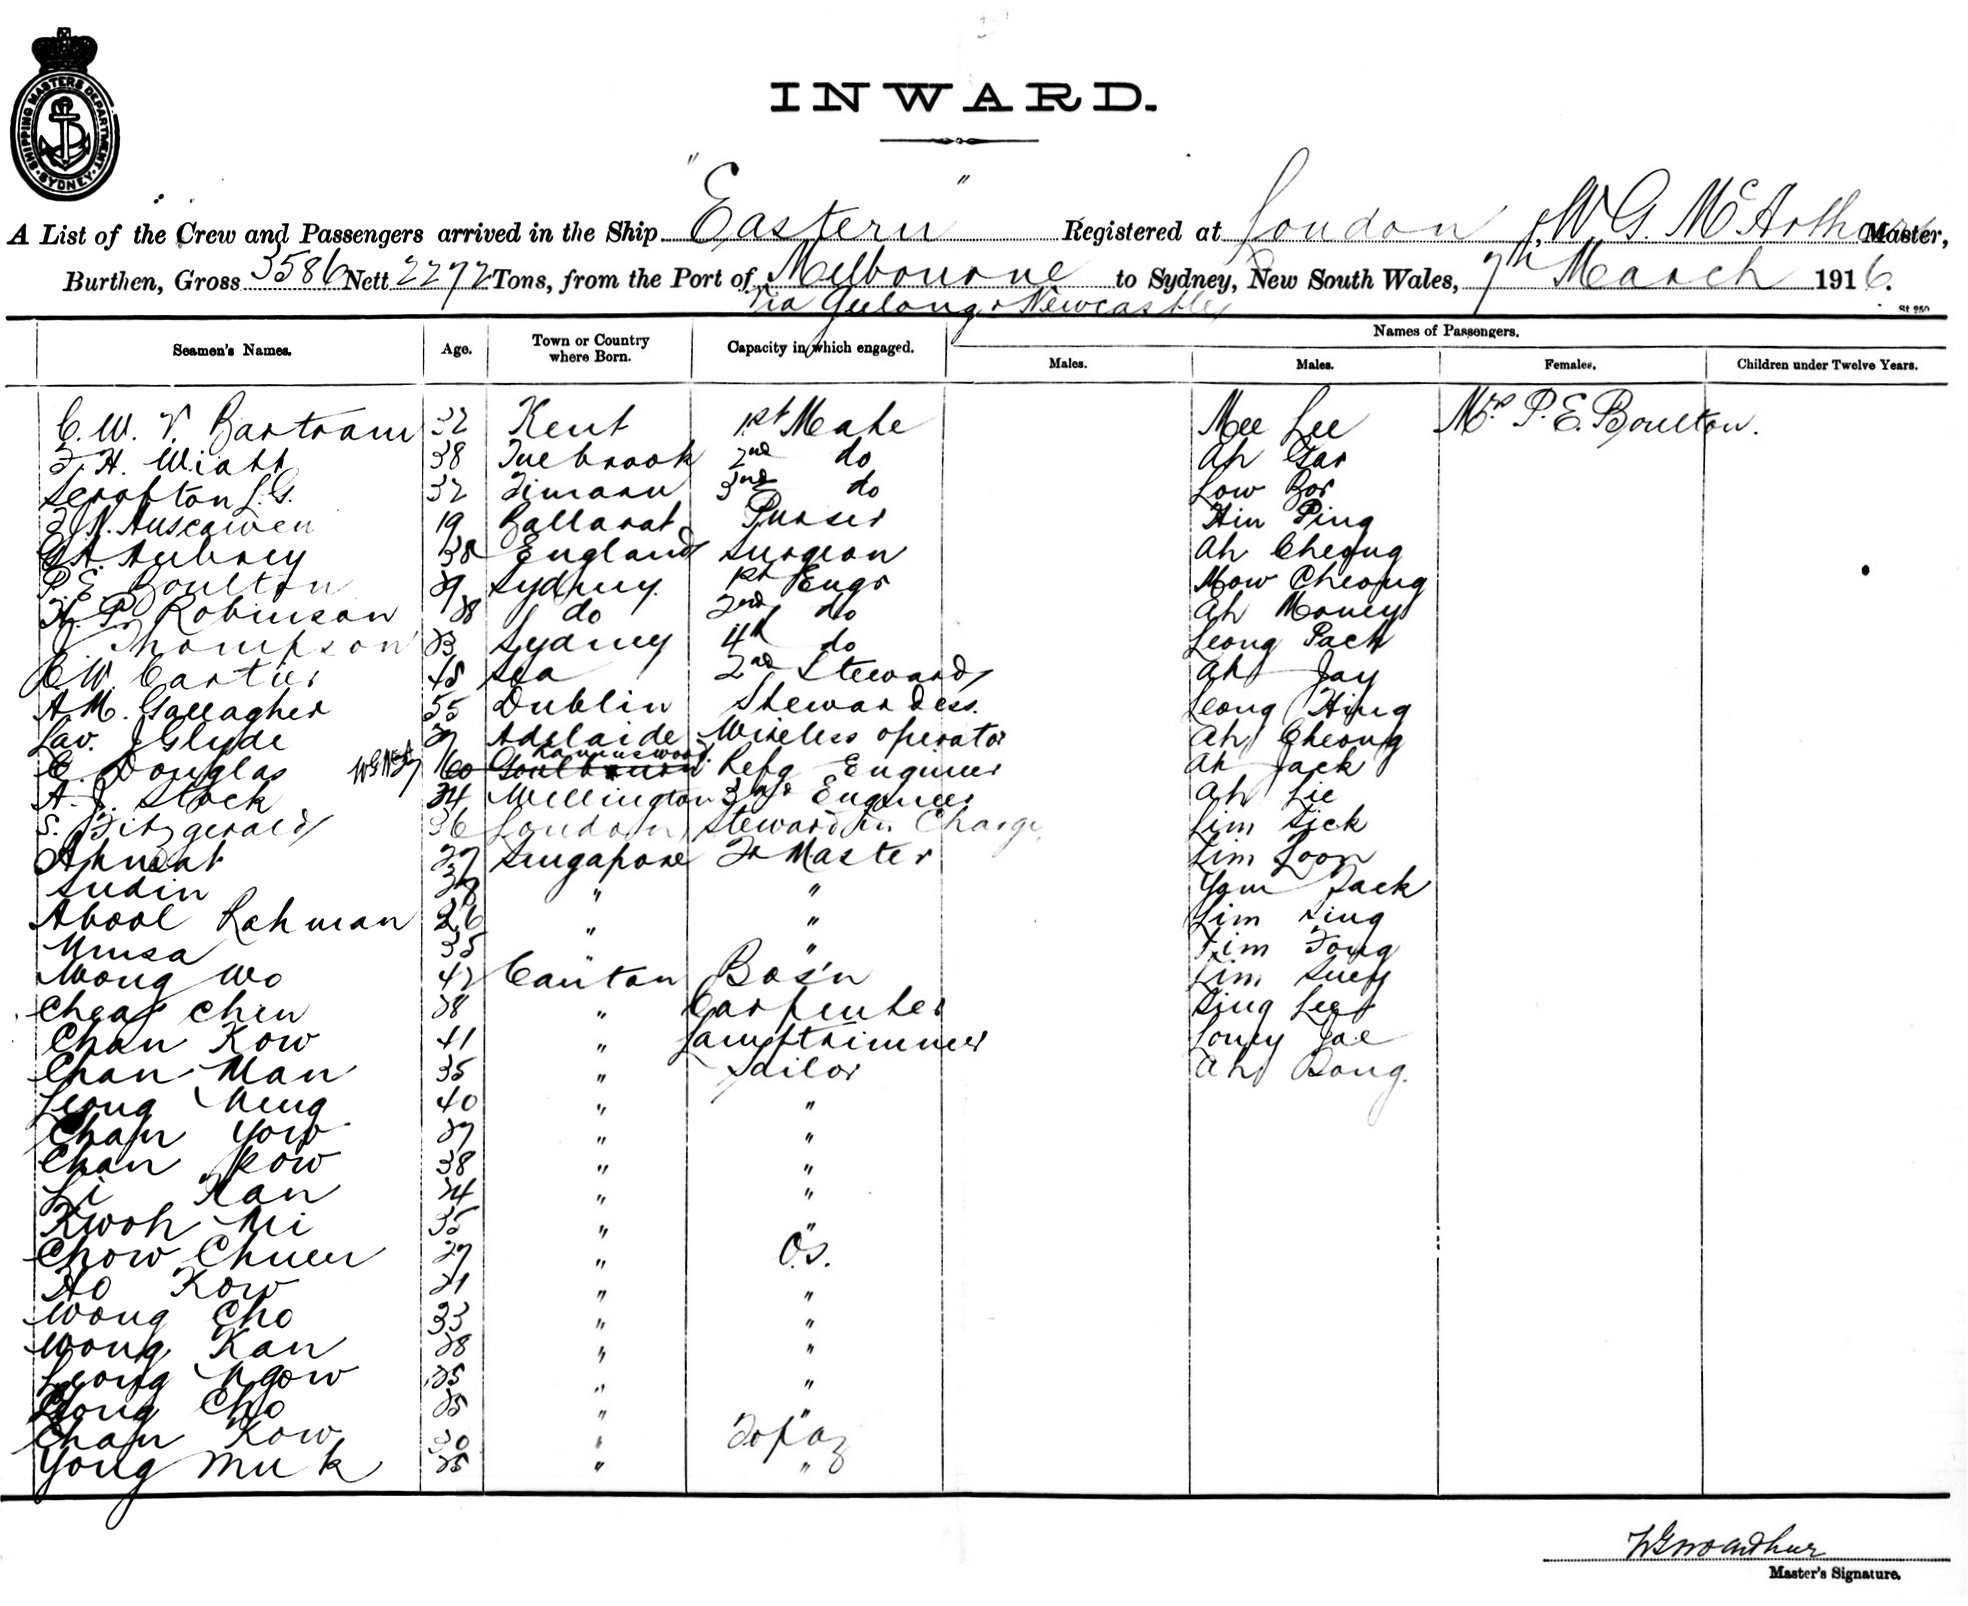 SHIPPING MASTERS DEPARTMENT. SYDNEY.
INWARD.
A List of the Crew and Passengers arrived in the Ship "Eastern" Registered at London, W G. McArthur Master,
Burthen, Gross 3586 Nett 2272 Tons, from the Port of Melbourne to Sydney, New South Wales, 7th March 1916.
Via Geelong & Newcastle
St 250
Seamen's Names. Age. Town or Country where Born. Capacity in which engaged. Names of Passengers.
Males. Males. Females. Children under Twelve Years.
C. W. V. Bartram 32 Kent 1st Mate Mee Lee Mrs P. E. Boulton.
F. H. Wiatt 38 Tuebrook 2nd do Ah Gar
Scrafton L. G. 32 Timaru 3rd do Low Bor
19 Ballarat Purser Hin Ping
G A. Aubrey 38 England Surgeon Ah Cheong
P. E. Boulton 29 Sydney. 1st Engr Mow Cheong
H. P. Robinson 28 do 2nd do Ah Money
J. Thompson 23 Sydney 4th do Leong Pack
C W. Cartier 48 Sea 2nd Steward Ah Jay
A M. Gallagher 55 Dublin Stewardess. Leong Hing
Lav. J Glyde 27 Adelaide Wireless operator Ah Cheong
C. Douglas 60 Goulbourn Refg Engineer Ah Jack
A. J. Stock 24 Wellington 3rd Engineer Ah Lie
S. Fitzgerald 36 London Steward in Charge Lim Sick
Ahmat 27 Singapore Qr Master Lim Loon
Sudin " " Yam Jack
Abool Rahman 26 " " Lim Sing
Musa 35 " " Lim Fong
Wong Wo 42 Canton Bos'n Lim Suey
Cheas Chin 28 " Carpenter Sing Lee
Chan Kow 41 " Lamptrimmer Loney Gae
Chan Man 35 " Sailor Ah Bong.
Leong Ming 40 " "
Chan Yow 27 " "
Chan Kow 38 " "
Li Kan 24 " "
Kwoh Mi 35 " "
Chow Chuen 27 " O.S.
Ho Kow 21 " "
Wong Cho 33 " "
Wong Kan 28 " "
Leong Ngow 25 " "
Cho 25 " "
Chan Kow 30 " Topaz
Yong Muk 25 " "
W G McArthur
Master's Signature.